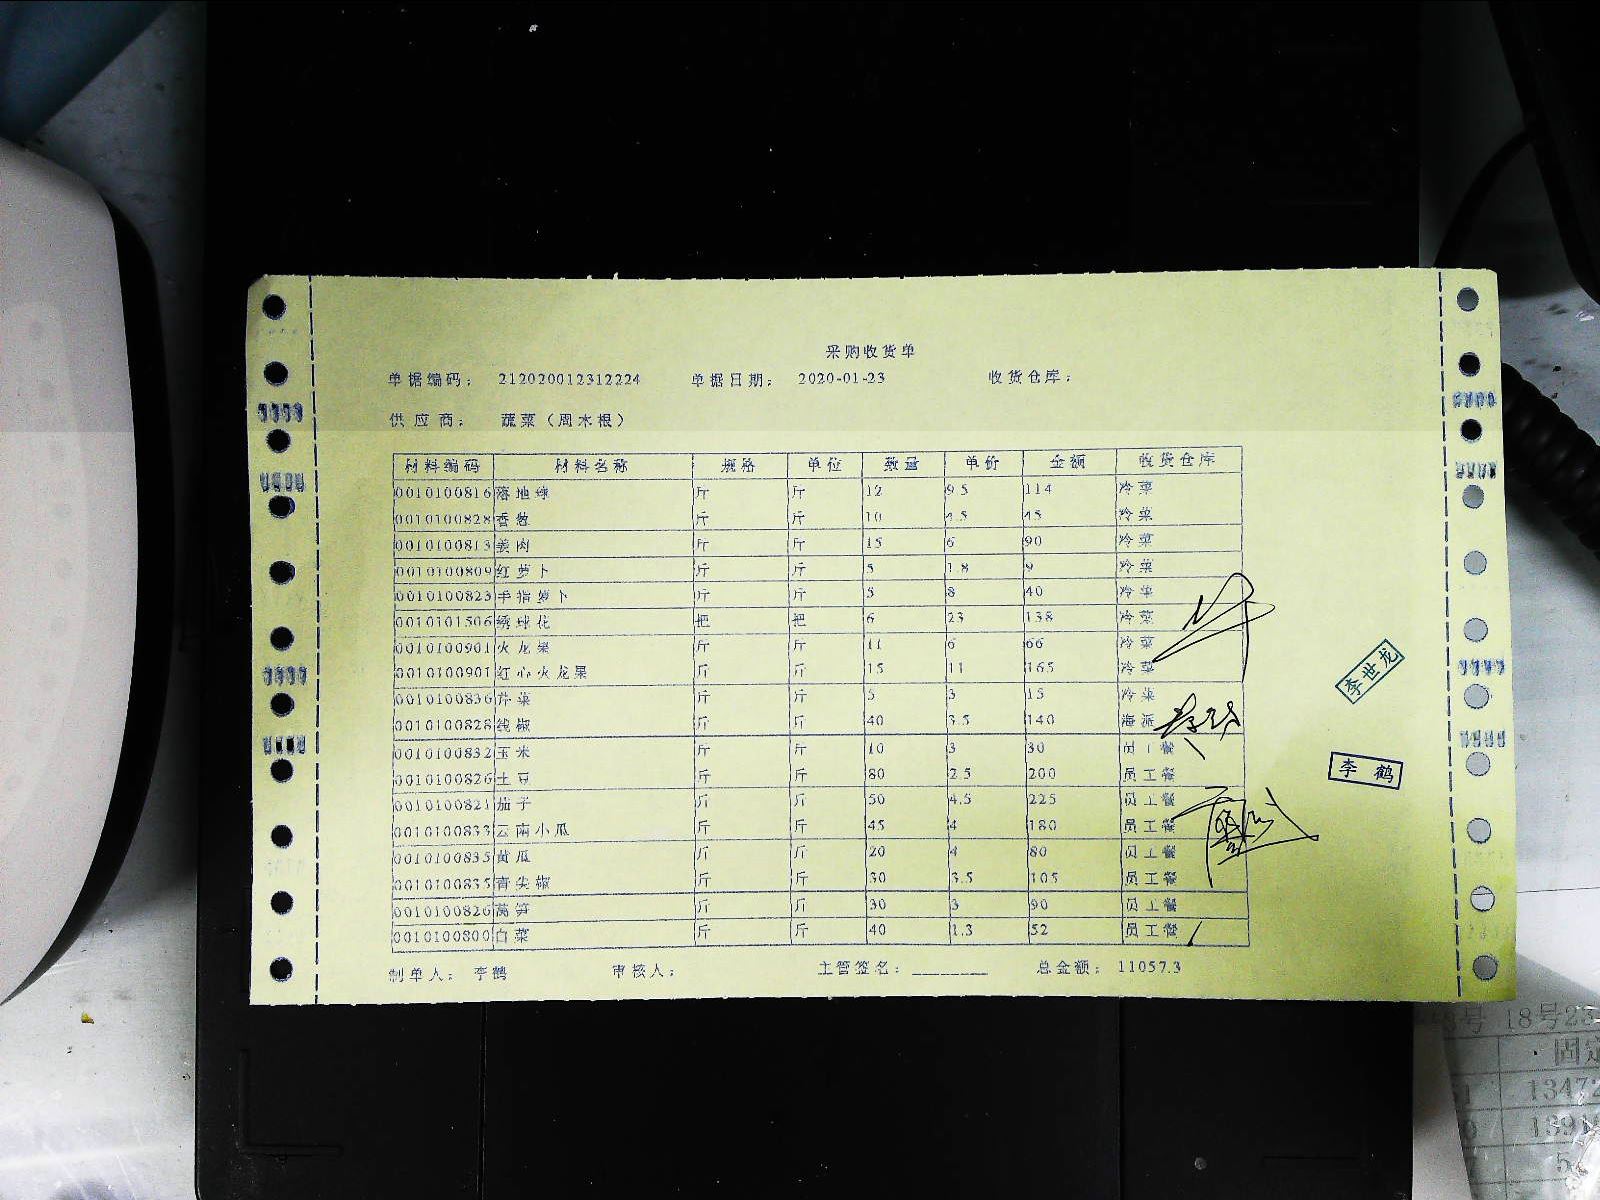 采购收货单
单据编码： 212020012312224 单据日期： 2020-01-23 收货仓库：
供应商： 蔬菜（周木根）
材料编码 材料名称 规格 单位 数量 单价 金额 收货仓库
0010100816 落地球 斤 斤 12 9.5 114 冷菜
0010100828 香葱 斤 斤 10 4.5 45 冷菜
0010100813 姜肉 斤 斤 15 6 90 冷菜
0010100809 红萝卜 斤 斤 5 1.8 9 冷菜
0010100823 手指萝卜 斤 斤 5 8 40 冷菜
0010101506 绣球花 把 把 6 23 138 冷菜
0010100901 火龙果 斤 斤 11 6 66 冷菜
0010100901 红心火龙果 斤 斤 15 11 165 冷菜
0010100836 芹菜 斤 斤 5 3 15 冷菜
0010100828 线椒 斤 斤 40 3.5 140 海派
0010100832 玉米 斤 斤 10 3 30 员工餐
0010100826 土豆 斤 斤 80 2.5 200 员工餐
0010100821 茄子 斤 斤 50 4.5 225 员工餐
0010100833 云南小瓜 斤 斤 45 4 180 员工餐
0010100835 黄瓜 斤 斤 20 4 80 员工餐
0010100835 青尖椒 斤 斤 30 3.5 105 员工餐
0010100826 莴笋 斤 斤 30 3 90 员工餐
0010100800 白菜 斤 斤 40 1.3 52 员工餐
制单人： 李鹤 审核人： 主管签名： 总金额： 11057.3
李世龙
李鹤
18号
固定